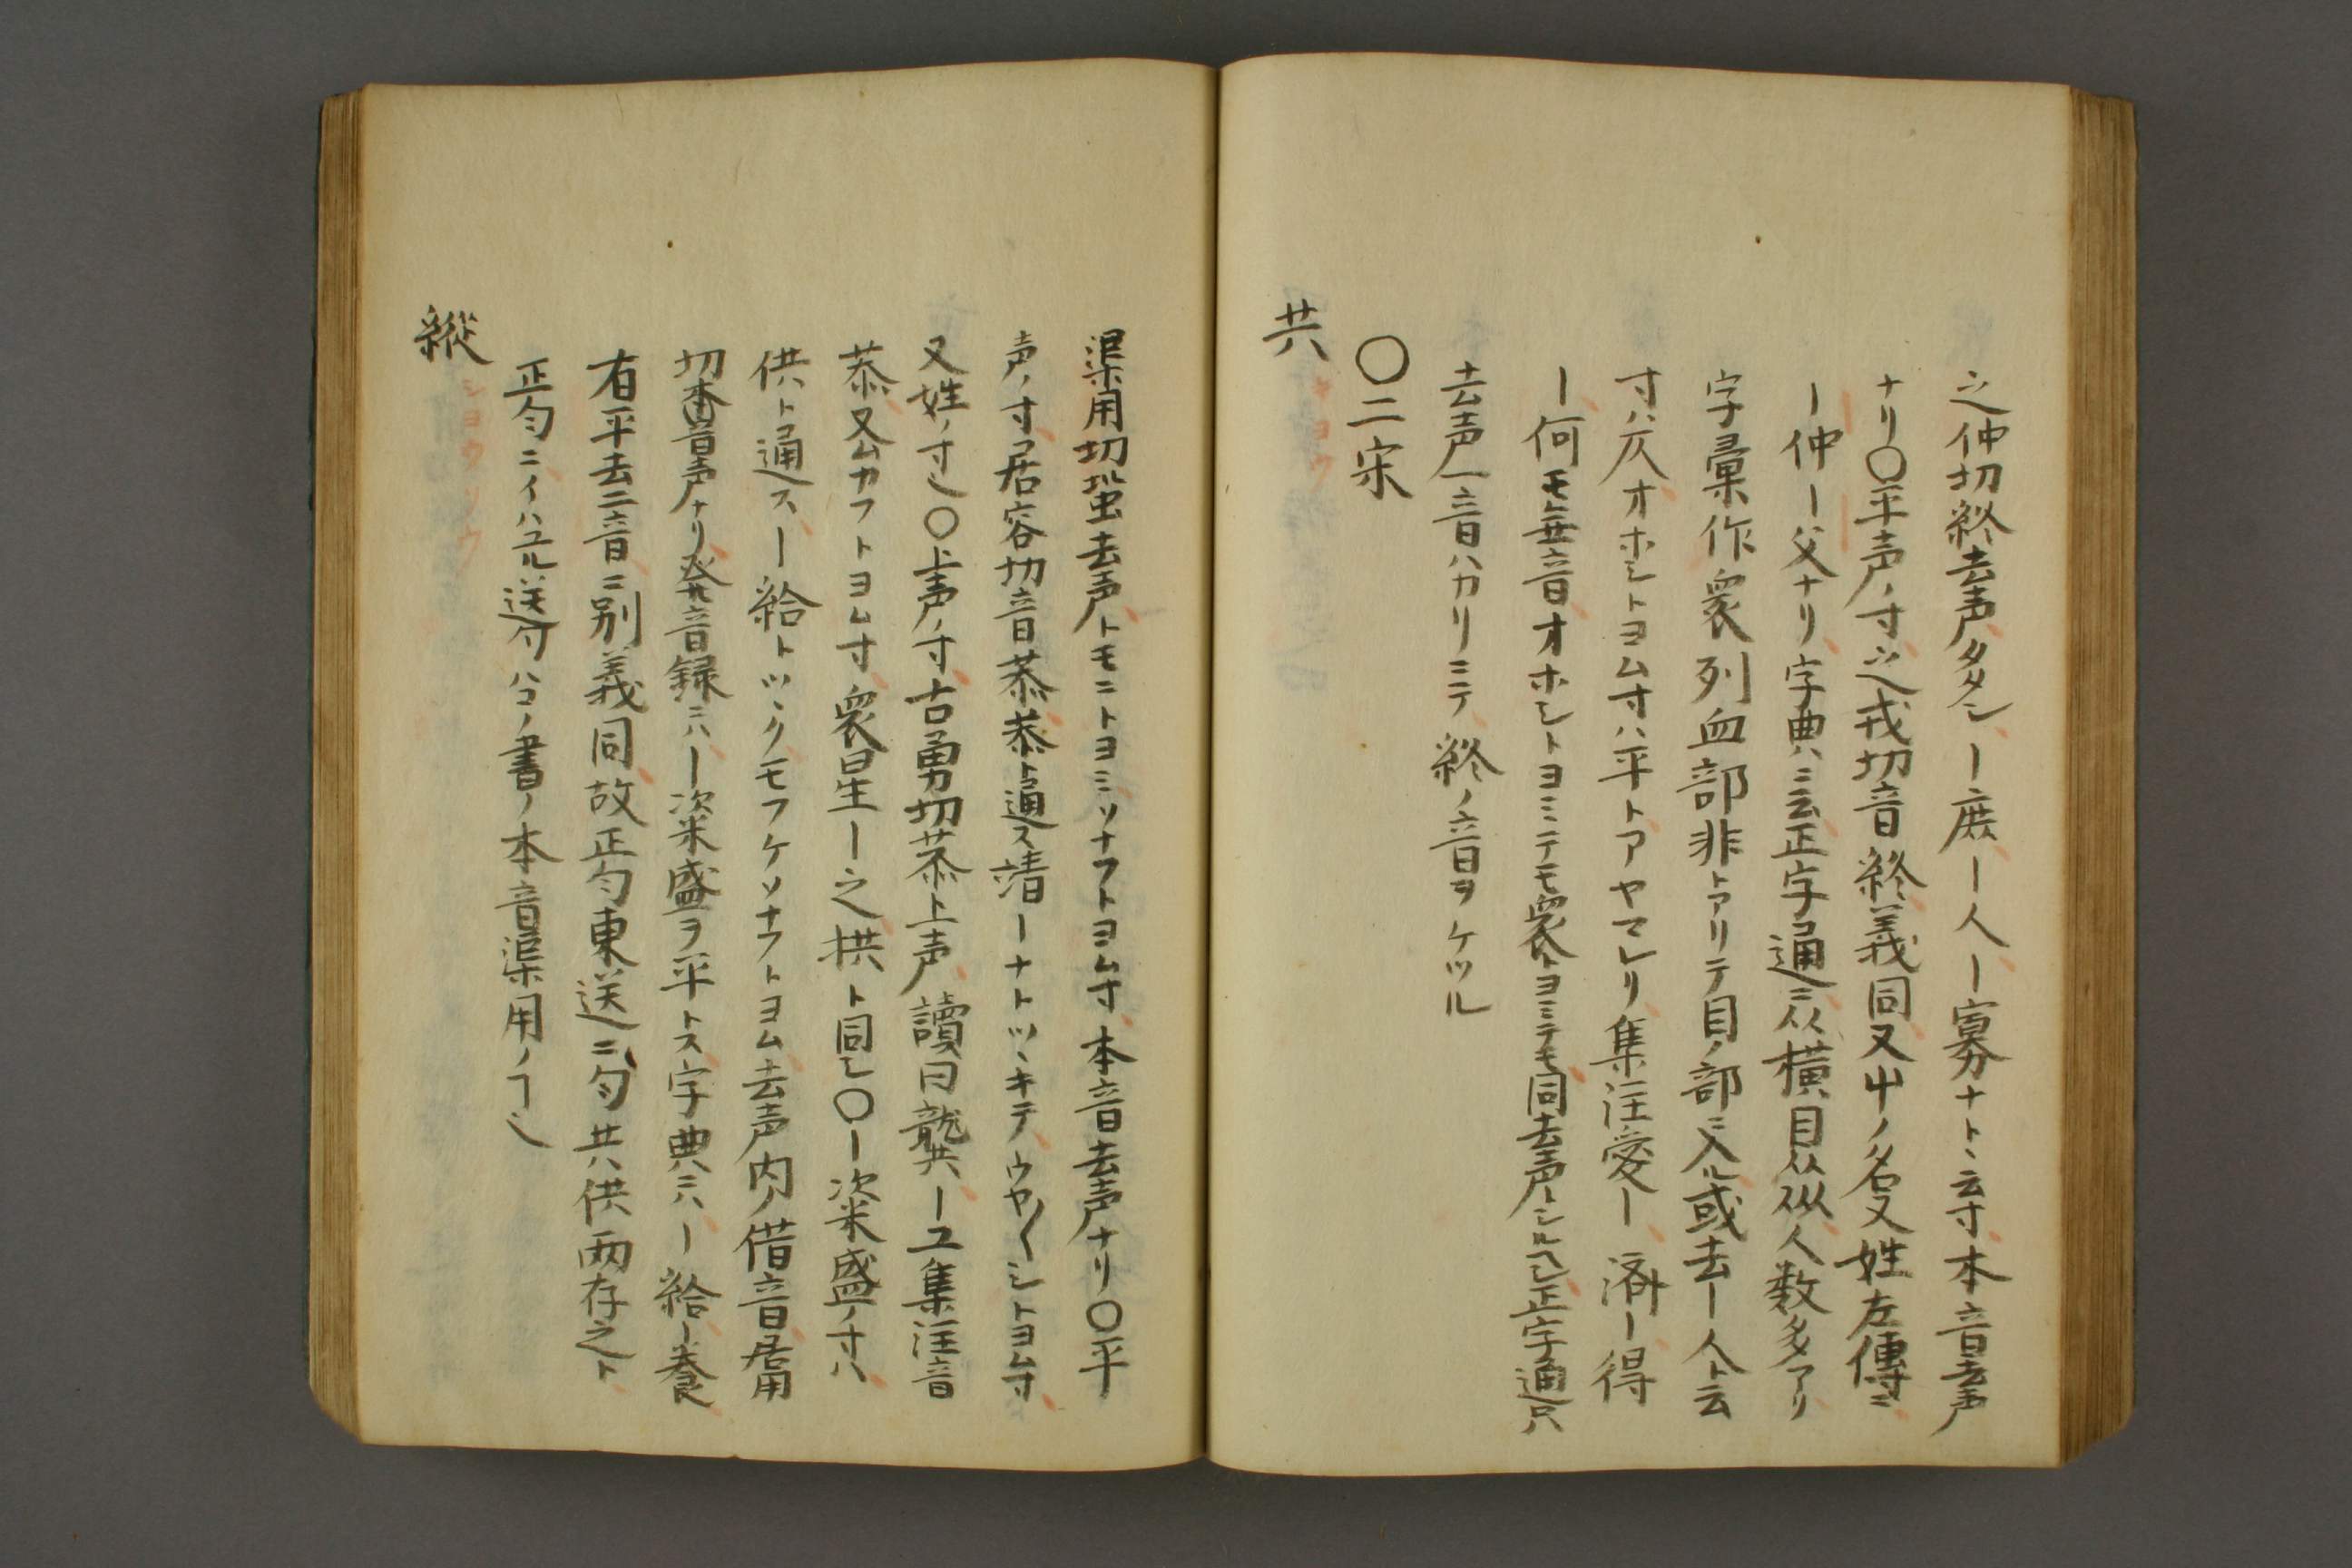 之仲切終去声タダシ｜庶｜人｜寡ナト云寸本音去声
ナリ〇平声ノ寸之戎切音終義同又艸ノ名又姓左傳ニ
｜仲｜父ナリ字典ハ云正字通ニ从橫目从㐺人数多アリ
字彙作衆列血部非トアリテ目ノ部ニ入ル或去｜人ト云
寸ハ仄オホシトヨム寸ハ平トアヤマレリ集注愛｜済｜得
｜何モ無音オホシトヨミテモ衆トヨミテモ同去声トシルヘシ正字通只
去声一音ハカリミテ終ノ音ヲケツル
〇二宋
共 キヨウ
渠用切蛩去声トモニトヨミソナフトヨム寸本音去声ナリ〇平
声ノ寸居容切音恭恭ト通ス靖｜ナトツヽキテウヤ〱シトヨム寸
又姓ノ寸也〇上声ノ寸古勇切恭上声讀曰龔｜工集注音
恭又ムカフトヨム寸衆星｜之拱ト同シ〇｜次米盛ノ寸ハ
供ト通ス｜給トツヽクモフケソナフトヨム去声内ノ借音居用
切畨音声ナリ発音録ニハ｜次米盛ヲ平トス字典ニハ｜給｜養
有平去二音ニ別義同故正匀東送二匀共供両存之ト
正匀ニイハユル送寸ハコノ書ノ本音渠用ノヿ也
縦 シヨウソウ